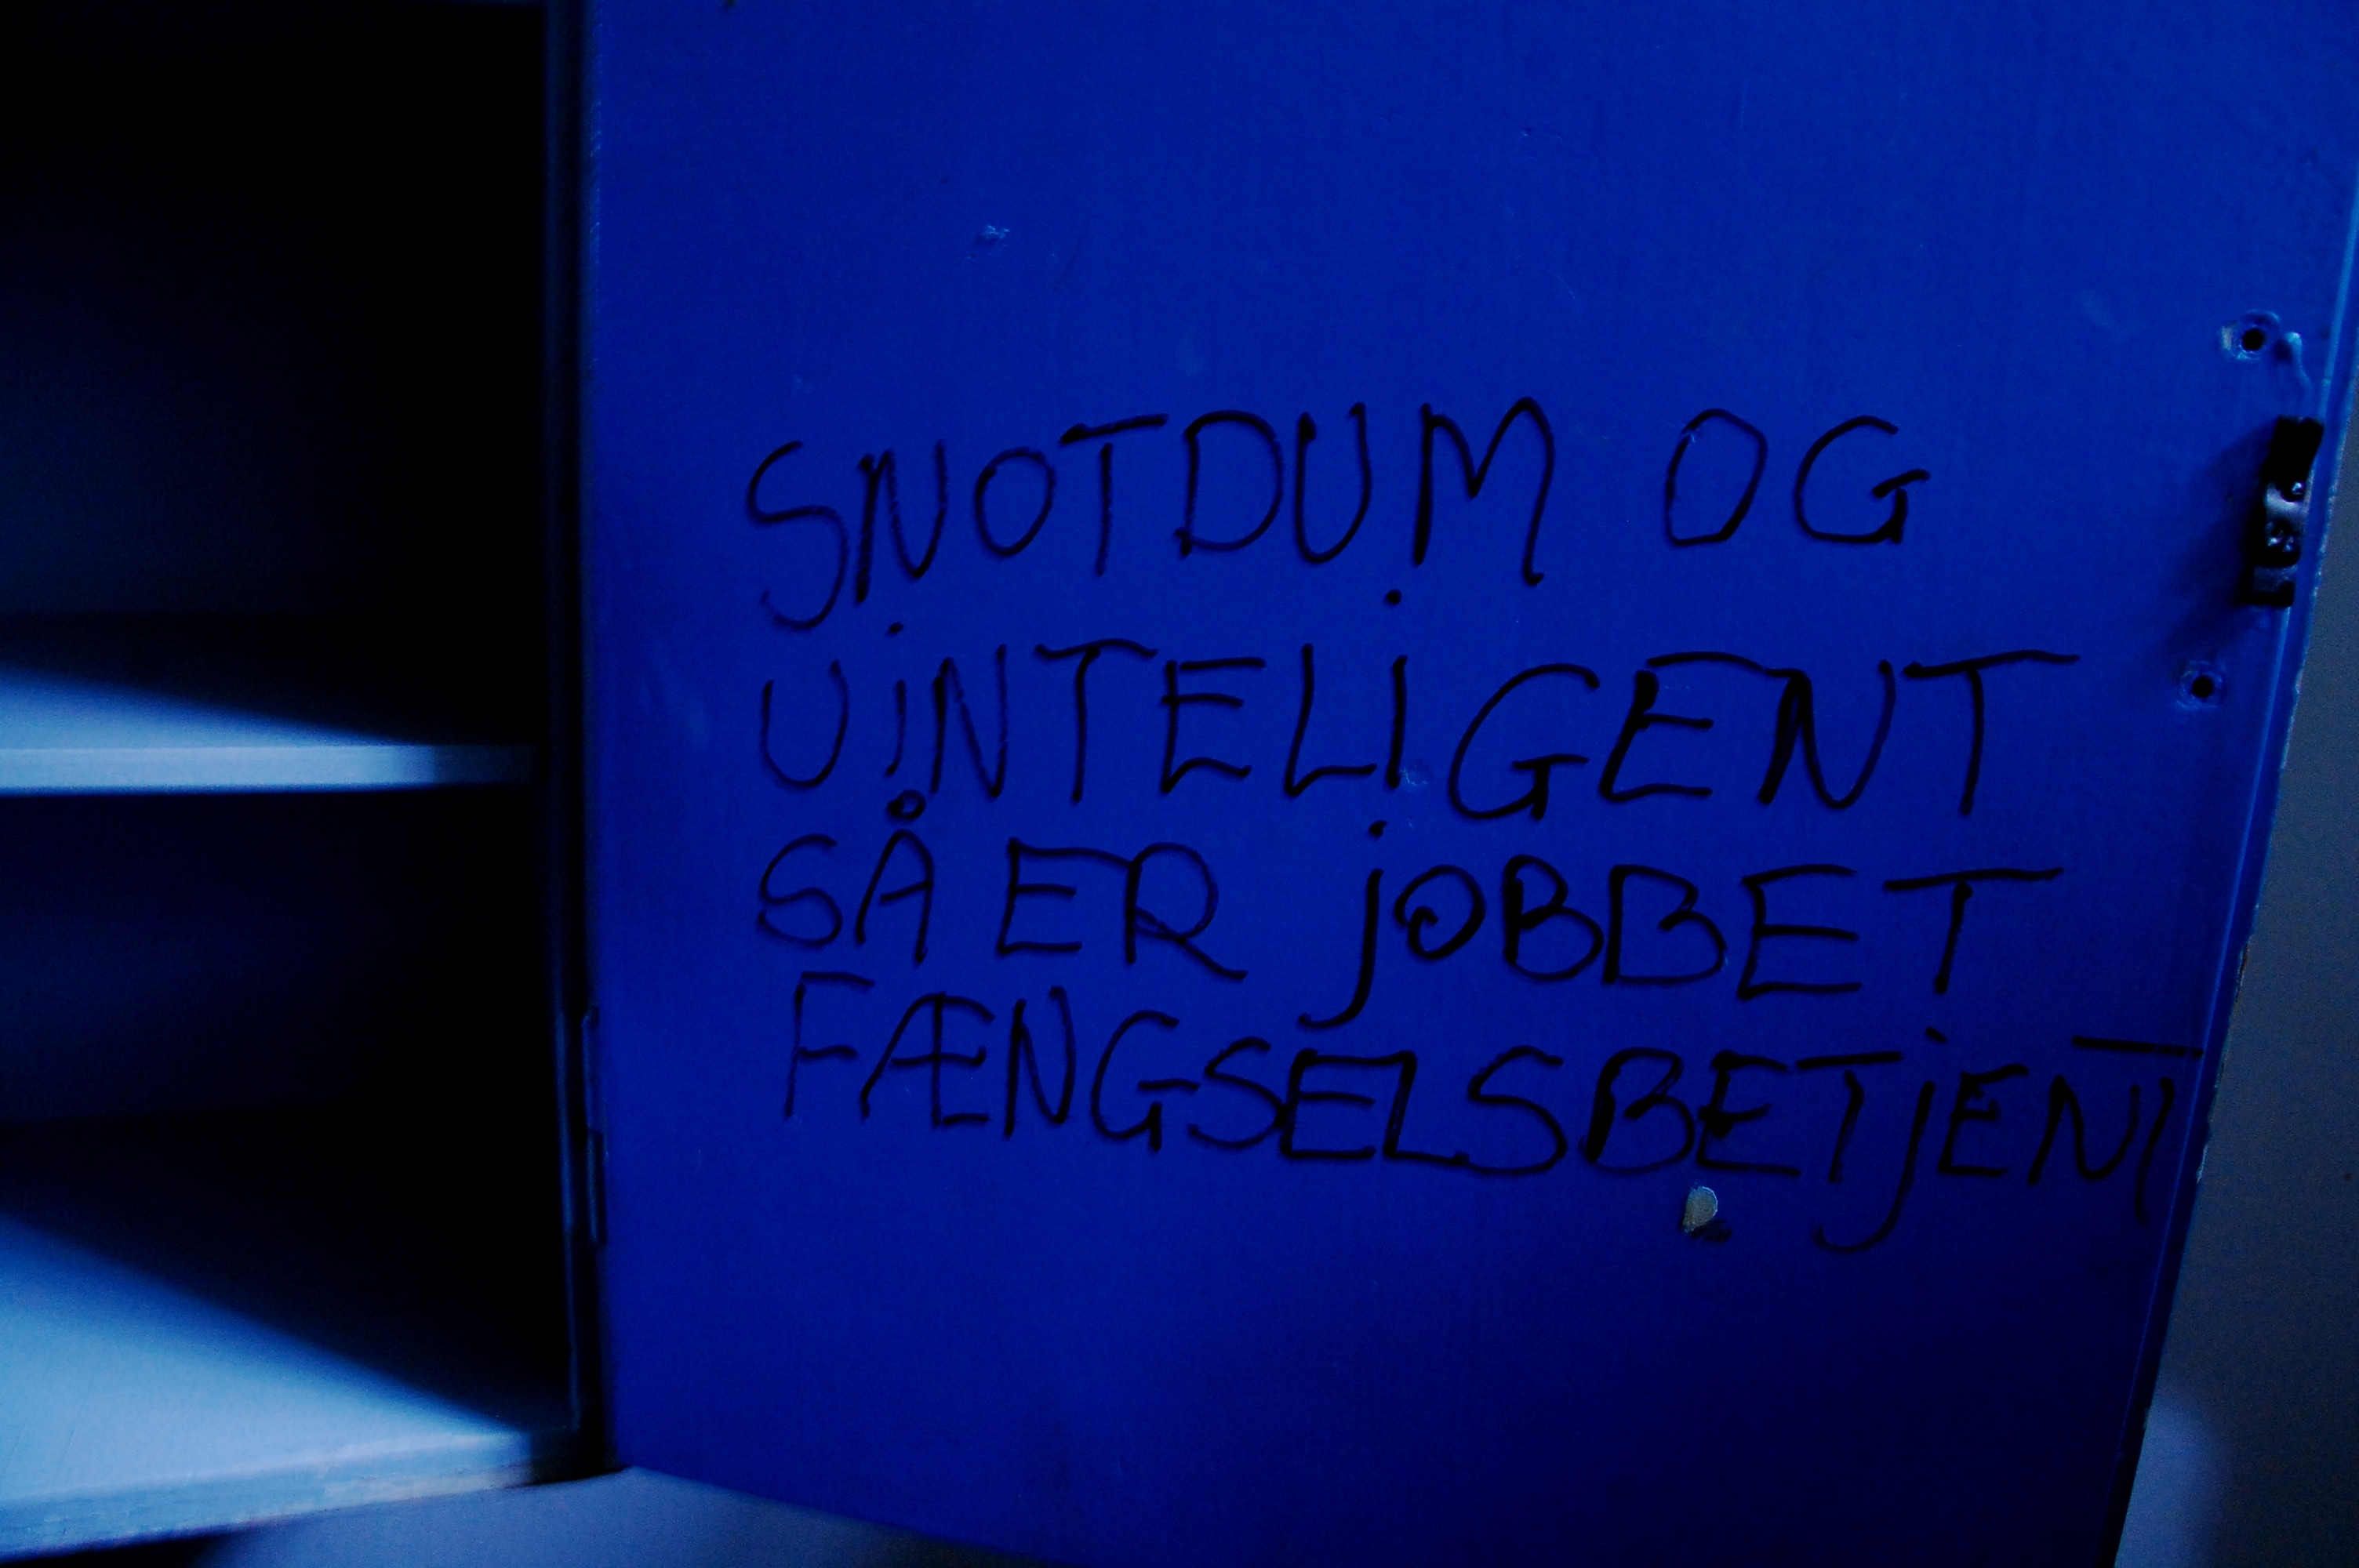 SNOTDUM OG
UiNTELiGENT
SÅ ER jOBBET
FÆNGSELSBETjENT